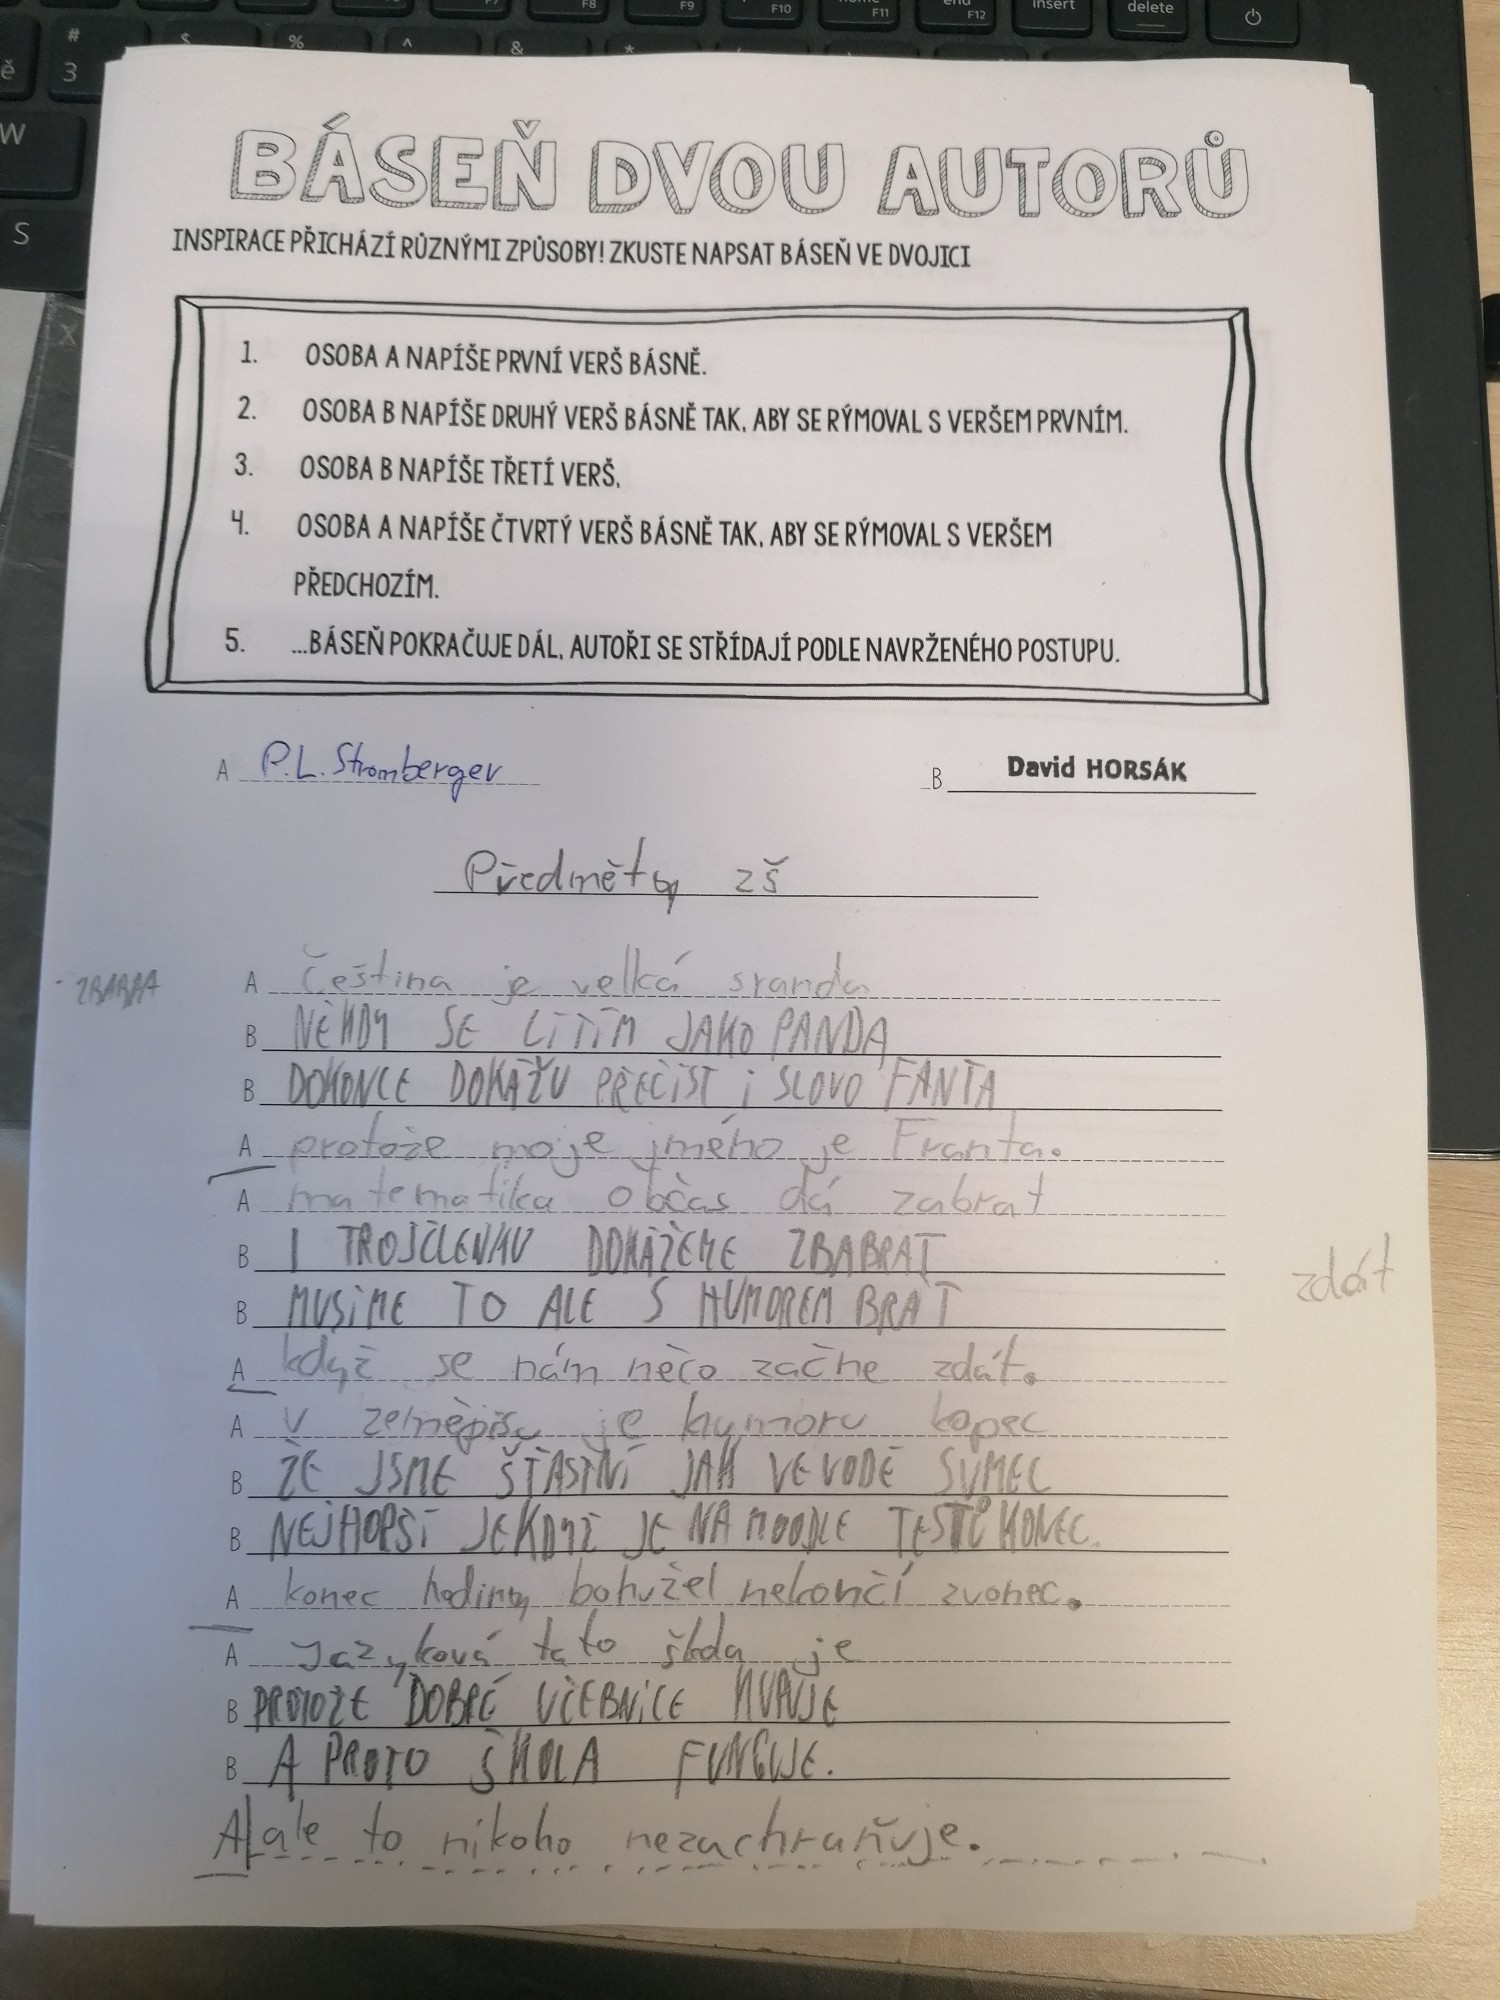 BÁSEŇ DVOU AUTORŮ
INSPIRACE PŘICHÁZÍ RŮZNÝMI ZPŮSOBY! ZKUSTE NAPSAT BÁSEŇ VE DVOJICI
1. OSOBA A NAPÍŠE PRVNÍ VERŠ BÁSNĚ.
2. OSOBA B NAPÍŠE DRUHÝ VERŠ BÁSNĚ TAK, ABY SE RÝMOVAL S VERŠEM PRVNÍM.
3. OSOBA B NAPÍŠE TŘETÍ VERŠ.
4. OSOBA A NAPÍŠE ČTVRTÝ VERŠ BÁSNĚ TAK, ABY SE RÝMOVAL S VERŠEM
PŘEDCHOZÍM.
5. ...BÁSEŇ POKRAČUJE DÁL, AUTOŘI SE STŘÍDAJÍ PODLE NAVRŽENÉHO POSTUPU.
A P.L. Stromberger
B David HORSÁK
Předměty zš
A čeština je velká sranda
B NĚKDY SE CÍTÍM JAKO PANDA
B DOKONCE DOKÁŽU PŘEČÍST i SLOVO FANTA
A protože moje jméno je Franta.
A matematika občas dá zabrat
B I TROJČLENKU DOKÁŽEME ZBABRAT
B MUSÍME TO ALE S HUMOREM BRÁT
zdát
A když se nám něco začne zdát.
A v zeměpisu je humoru kopec
B ŽE JSME ŠŤASTNÍ JAK VE VODĚ SUMEC
B NEJHORŠÍ JE KDYŽ JE NA MOODLE TESTŮ KONEC.
A konec hodiny bohužel nekončí zvonec.
A Jazyková tato škola je
B PROTOŽE DOBRÉ UČEBNICE KUPUJE
B A PROTO ŠKOLA FUNGUJE.
A ale to nikoho nezachraňuje.